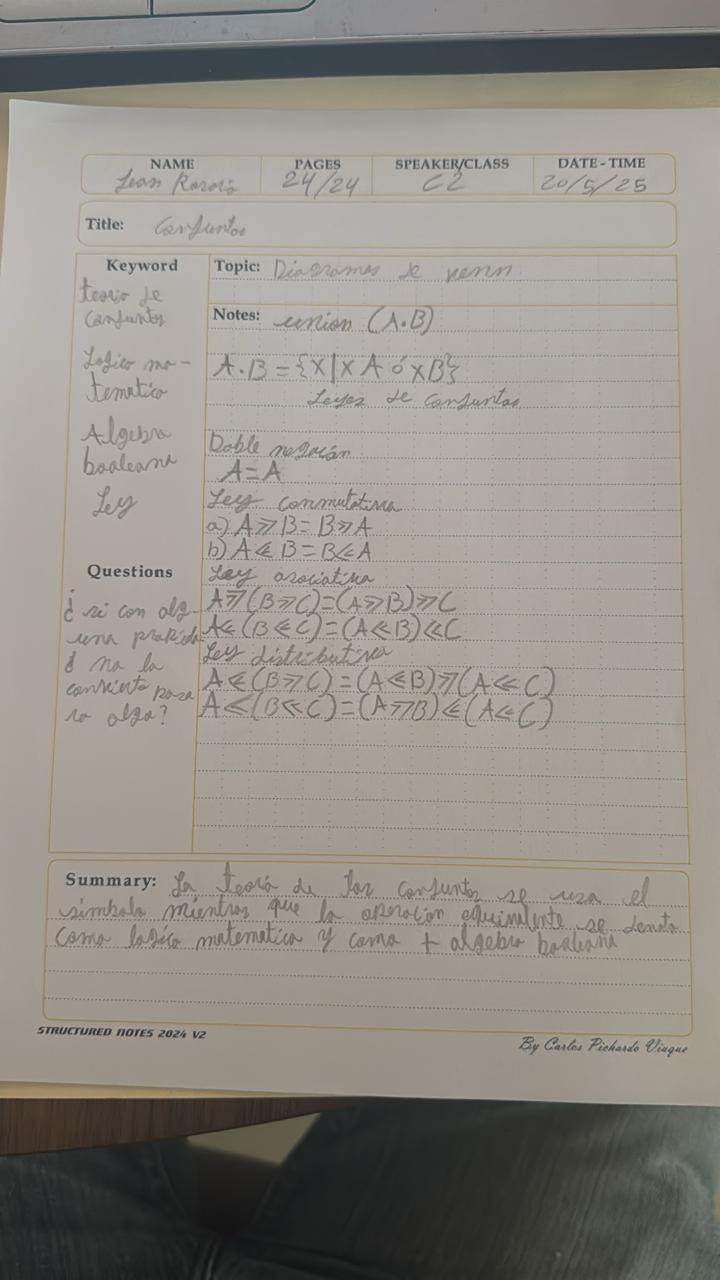 NAME PAGES SPEAKER/CLASS DATE - TIME
24/24 C2 20/5/25
Title: Conjuntos
Keyword
teoría de
conjuntos
Logico ma-
tematico
Algebra
booleana
Ley
Questions
¿ si con alg-
una
no la
para
algo?
Topic: Diagramas de venn
Notes: union (A.B)
A.B={x|x A ó xB}
Leyes de conjuntos
Doble negación
A=A
Ley conmutativa
a) A⩾B=B⩾A
b) A⩽B=B⩽A
Ley asociativa
A⩾(B⩾C)=(A⩾B)⩾C
A⩽(B⩽C)=(A⩽B)⩽C
Ley distributiva
A⩽(B⩾C)=(A⩽B)⩾(A⩽C)
A⩽(B⩽C)=(A⩾B)⩽(A⩽C)
Summary: La teoría de los conjuntos se usa el
símbolo mientras que la operación equivalente se denota
como logica matematica y como + algebra booleana
STRUCTURED NOTES 2024 V2
By Carlos Pichardo Viuque